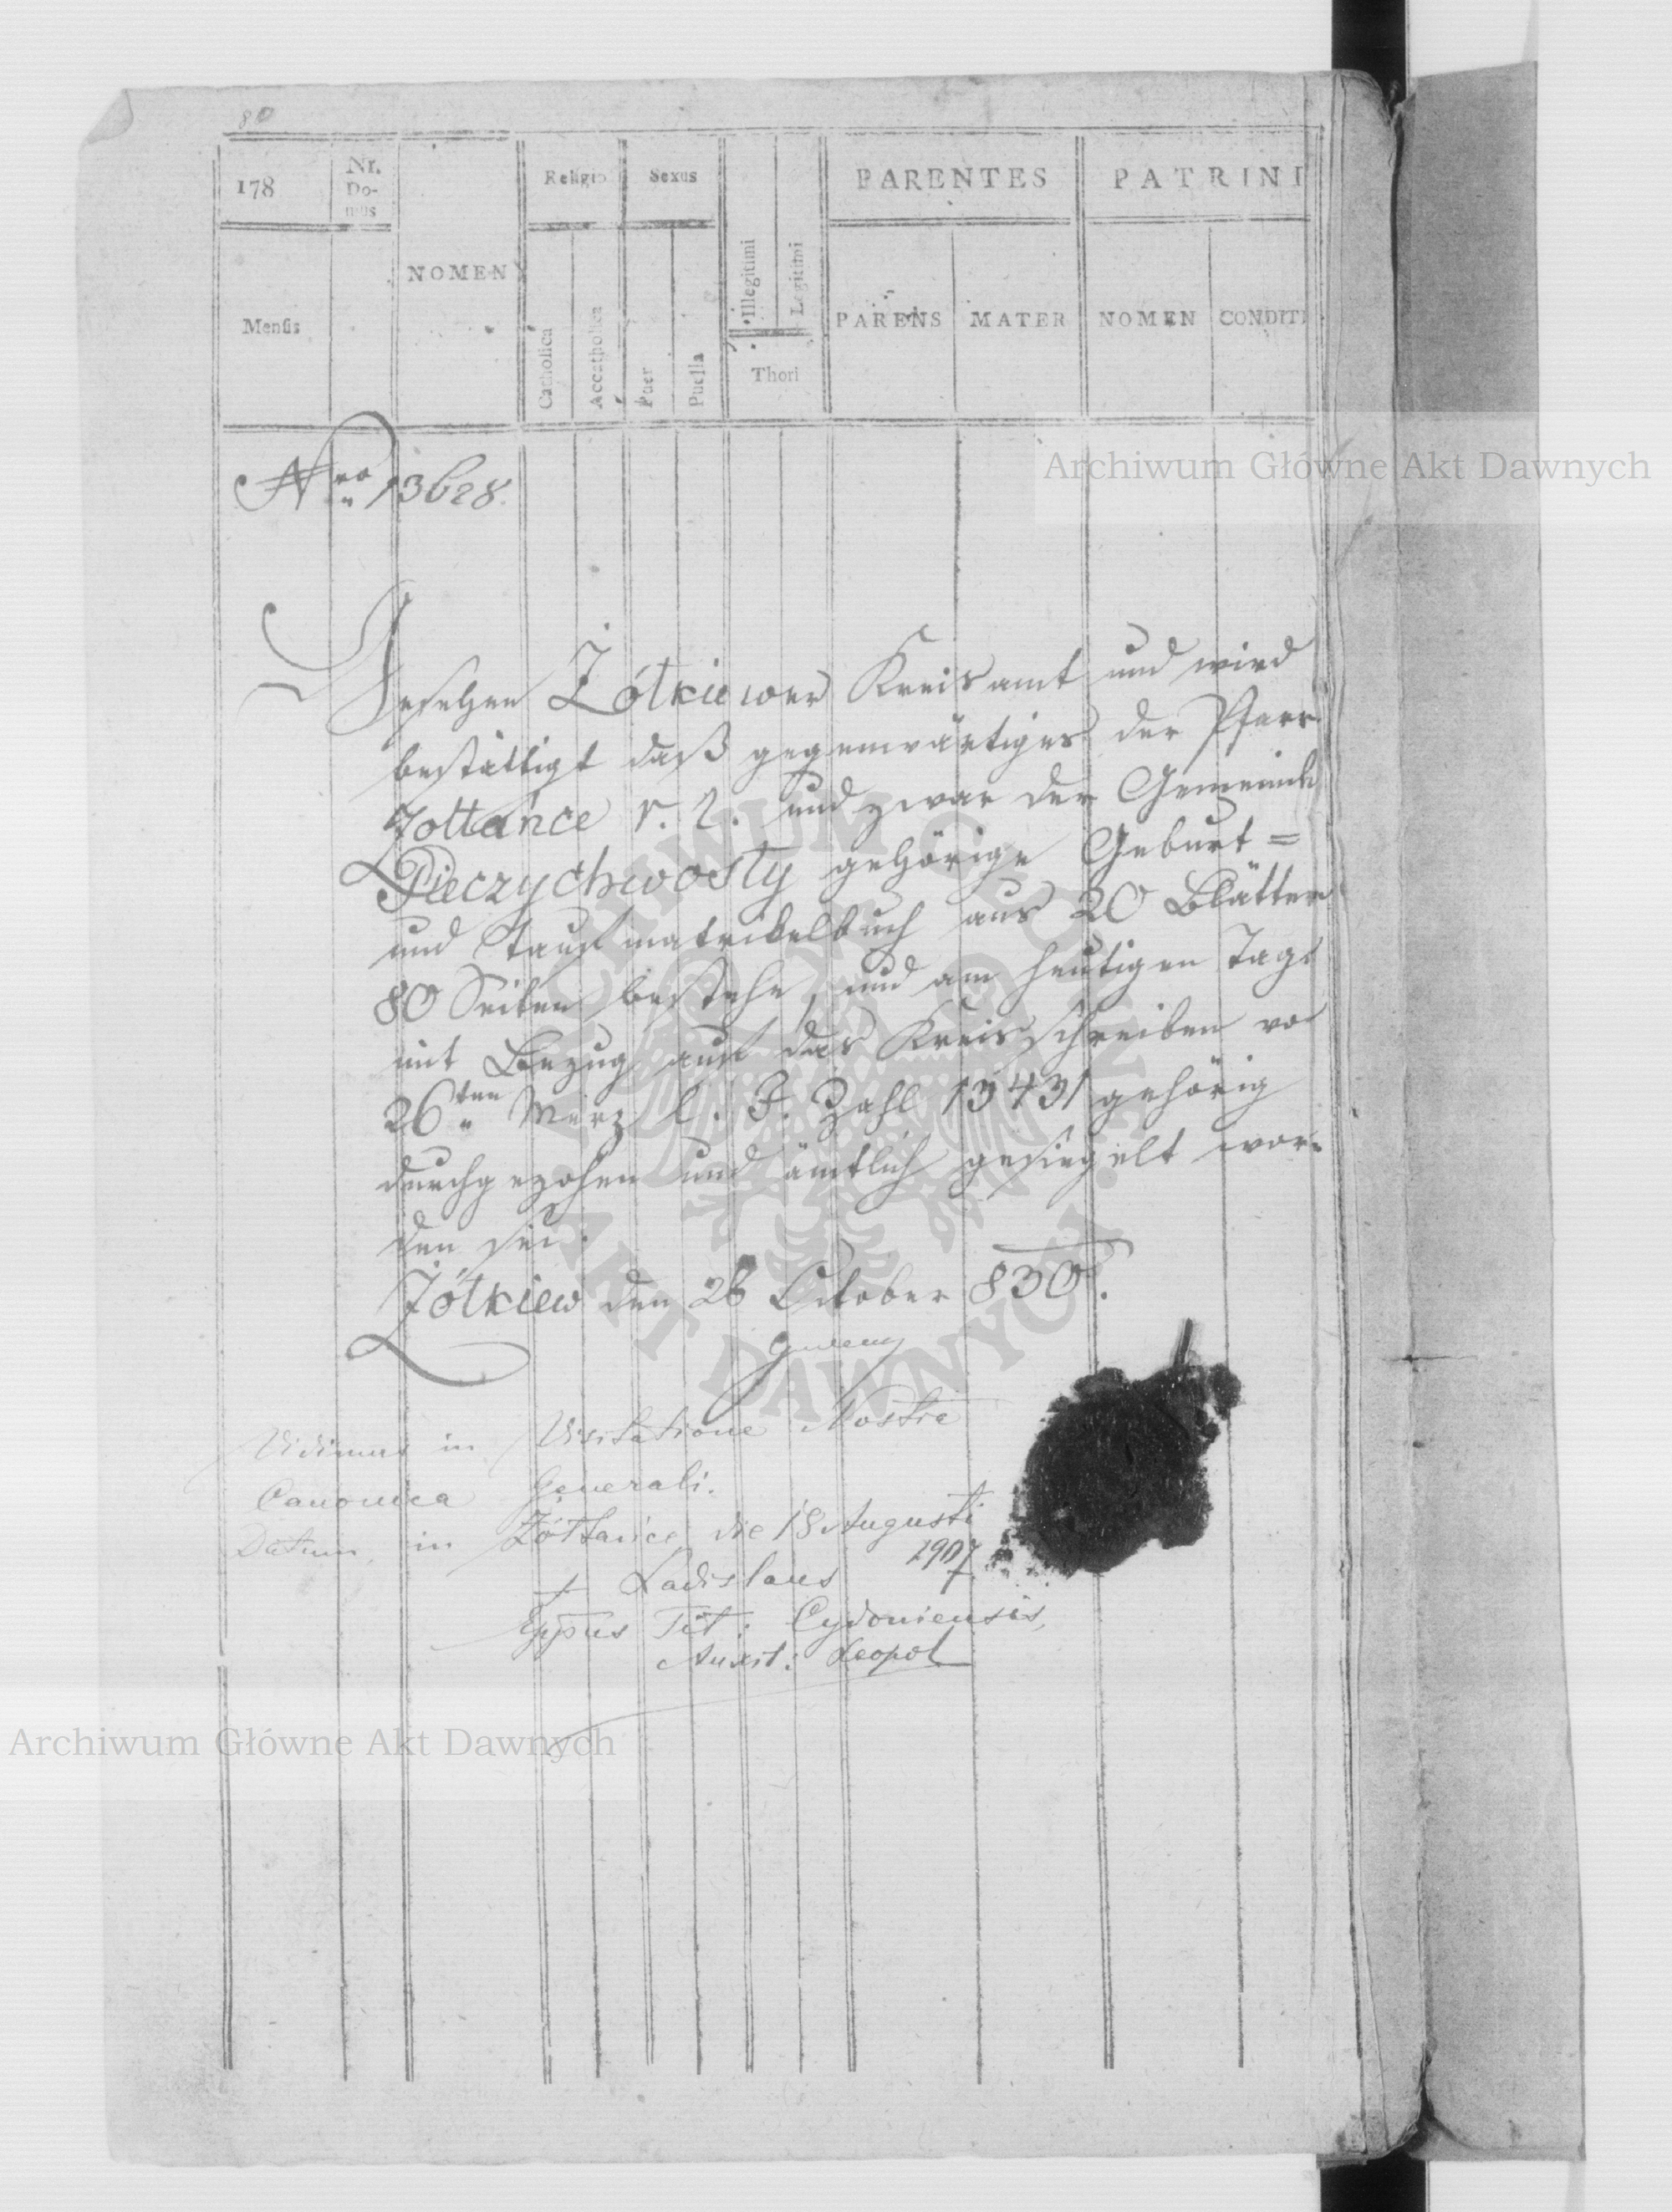 80
178
Nr.
Do-
mus
NOMEN
Religio
Sexus
PARENTES
PATRINI
Mensis
Catholica
Accatholica
Puer
Puella
Illegitimi
Legitimi
Thori
PARENS
MATER
NOMEN
CONDITI
Archiwum Główne Akt Dawnych
Nro 13628.
Gesehen Żółkiewer Kreisamt und wird
bestättigt daß gegenwärtiges der Pfarr
Żołtańce r. l. und zwar der Gemeinde
Pieczychwosty gehörige Geburt=
und Taufmatrikelbuch aus 20 Blätter
80 Seiten bestehe, und am heutigen Tage
mit Bezug auf das Kreisschreiben vo
26ten März l. J. Zahl 13431 gehörig
durchgezohen und ämtlich gesiegelt wor-
den sei.
Żółkiew den 26 October 830.
Vidimus in Visitatione Nostra
Canonica Generali.
Datum, in Żółtańce, die 18 Augusti
1907
† Ladislaus
Eppus Tit: Cydoniensis,
Auxil: Leopol
Archiwum Główne Akt Dawnych
ARCHIWUM GŁÓWNE AKT DAWNYCH